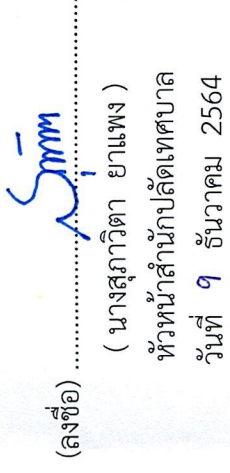 (ลงชื่อ)
( นางสุภาวิตา ยาแพง )
หัวหน้าสำนักปลัดเทศบาล
วันที่ ๑ ธันวาคม 2564